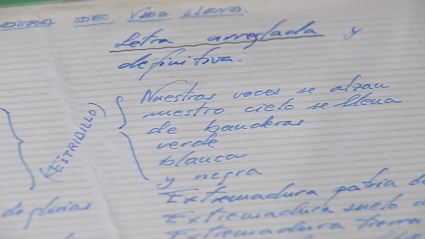 DURA DE VIDA LLENA.
Letra arreglada y
definitiva.
(ESTRIBILLO)
Nuestras voces se alzan
nuestro cielo se llena
de banderas
verde
blanca
y negra
Extremadura patria de
de glorias
Extremadura suelo d
Extremadura tierra